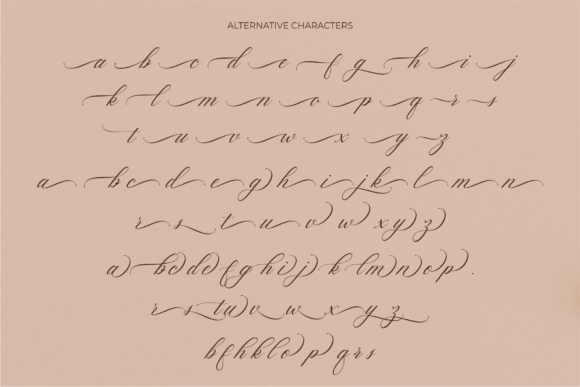 ALTERNATIVE CHARACTERS
a b c d e f g h i j
k l m n o p q r s
t u v w x y z
a b c d e g h i j k l m n
r s t u v w x y z
a b c d e f g h i j k l m n o p .
r s t u v w x y z
b f h k l o p q r s